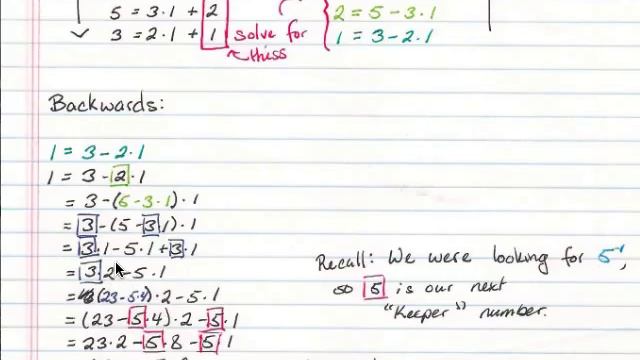 5 = 3·1 + 2
2 = 5 - 3·1
3 = 2·1 + 1
solve for
thiss
1 = 3 - 2·1
Backwards:
1 = 3 - 2·1
1 = 3 - 2·1
= 3 - (5 - 3·1)·1
= 3 - (5 - 3·1)·1
= 3·1 - 5·1 + 3·1
= 3·2 - 5·1
= (23 - 5·4)·2 - 5·1
= (23 - 5·4)·2 - 5·1
= 23·2 - 5·8 - 5·1
Recall: We were looking for 5⁻¹,
so 5 is our next
"Keeper" number.